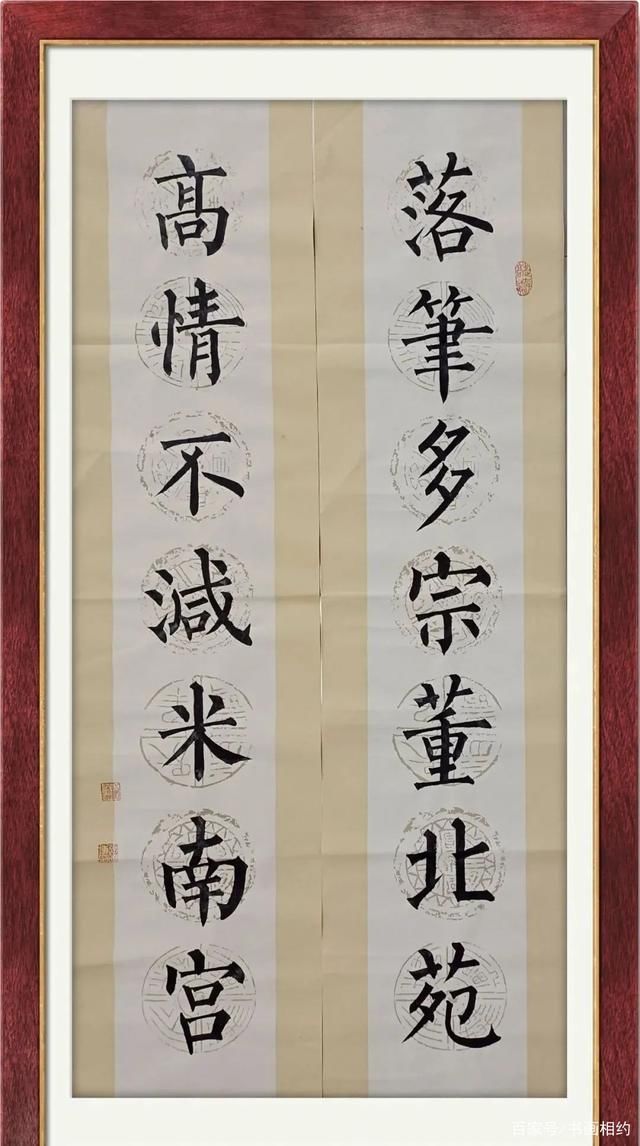 落筆多宗董北苑
高情不減米南宫
百家号/书画相约